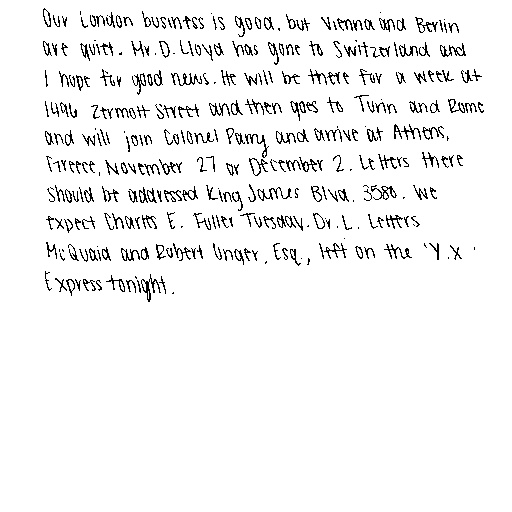 Our London business is good, but Vienna and Berlin
are quiet. Mr. D. Lloyd has gone to Switzerland and
I hope for good news. He will be there for a week at
1496 Zermott Street and then goes to Turin and Rome
and will join Colonel Parry and arrive at Athens,
Greece, November 27 or December 2. Letters there
should be addressed King James Blvd. 3580. We
expect Charles E. Fuller Tuesday. Dr. L. Letters
McQuaid and Robert Unger, Esq., left on the 'Y.X.'
Express tonight.